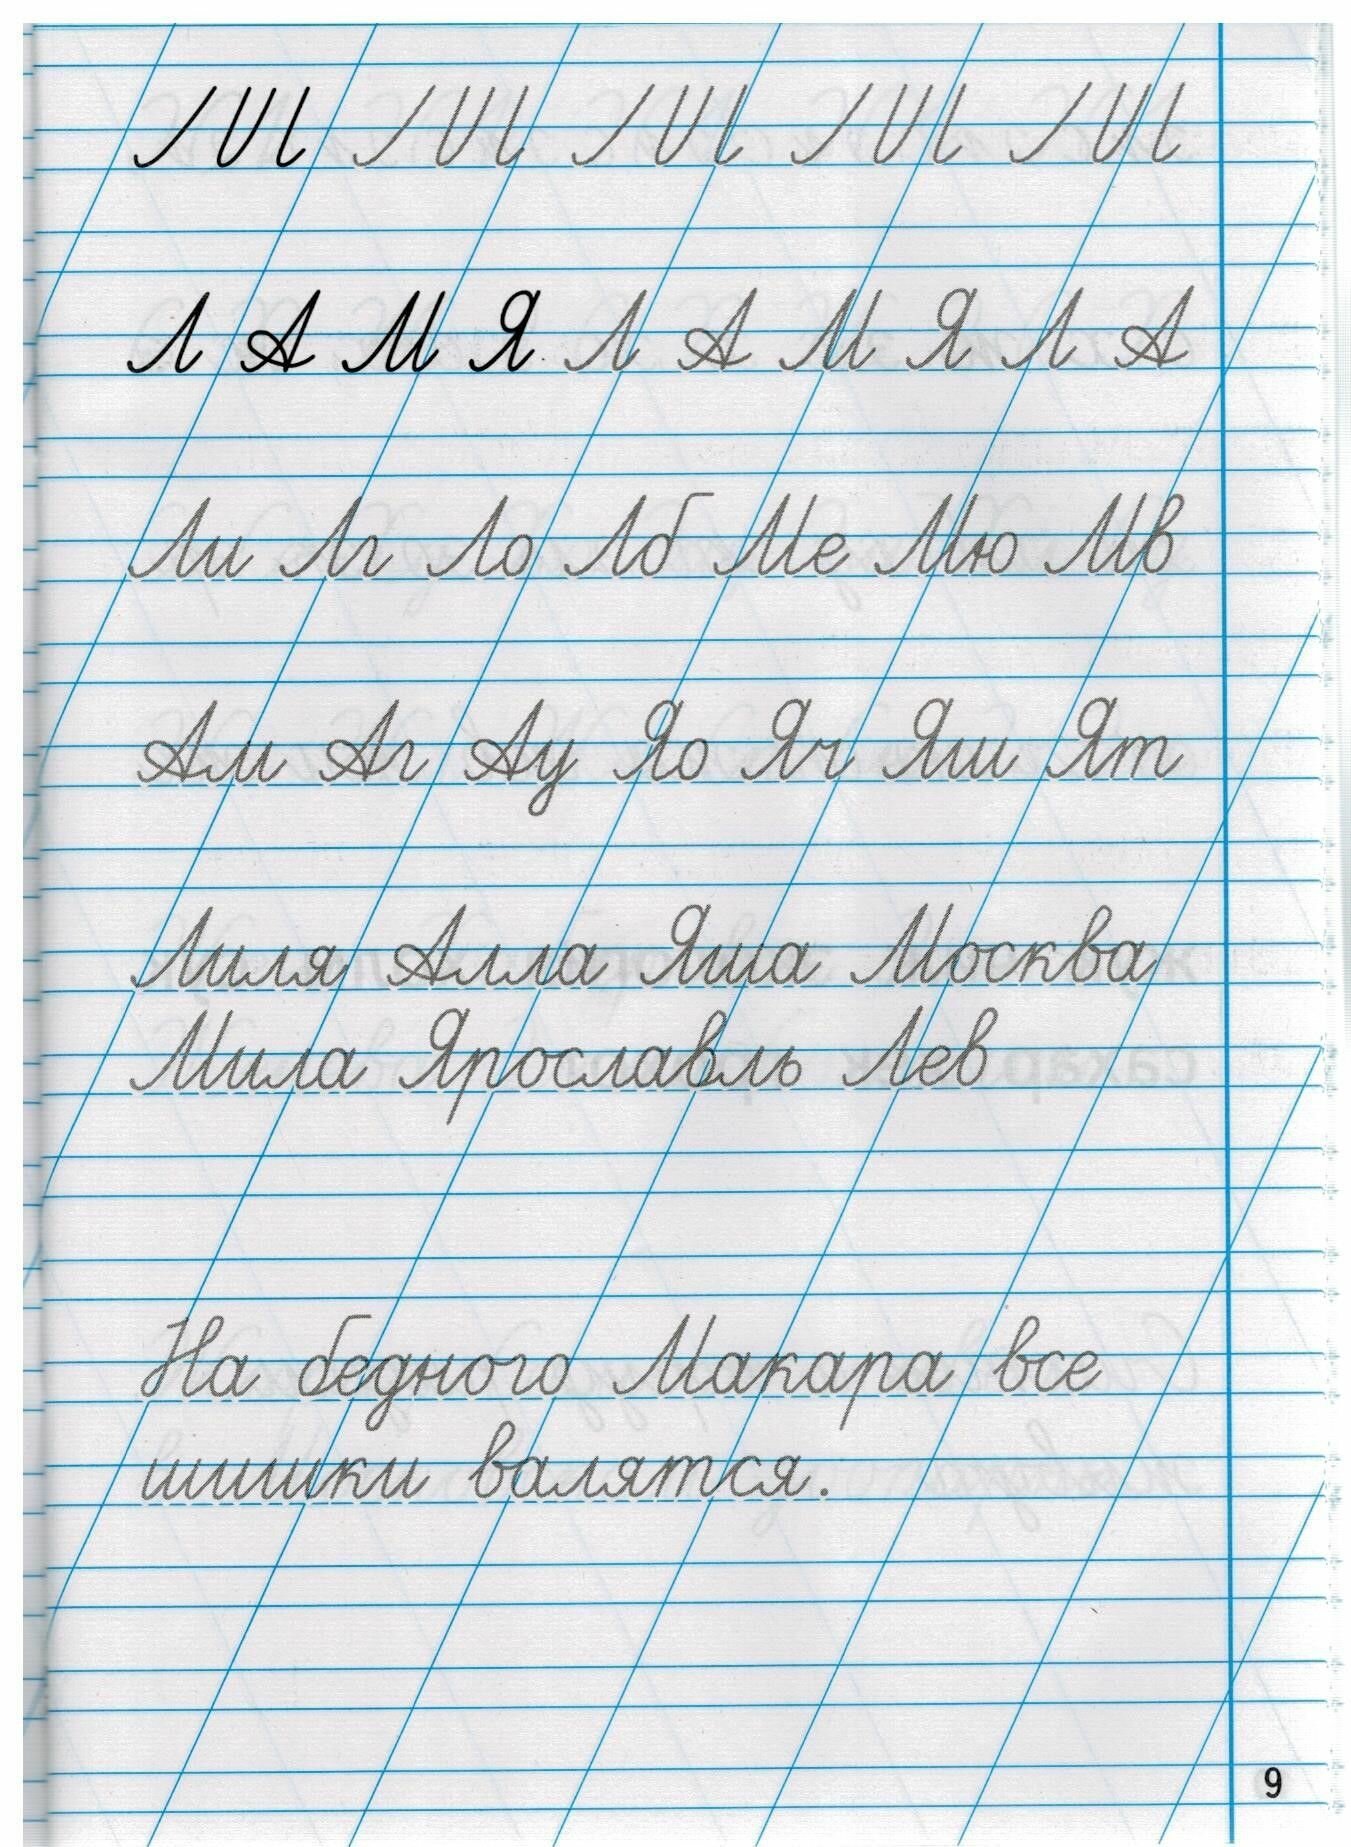 Л А М Я Л А М Я Л А
Ли Лг Ло Лб Ме Мю Мв
Ам Аг Ау Яо Яч Яш Ят
Лиля Алла Яша Москва
Мила Ярославль Лев
На бедного Макара все
шишки валятся.
9